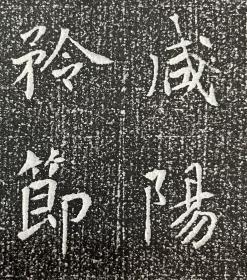 咸陽
矜節